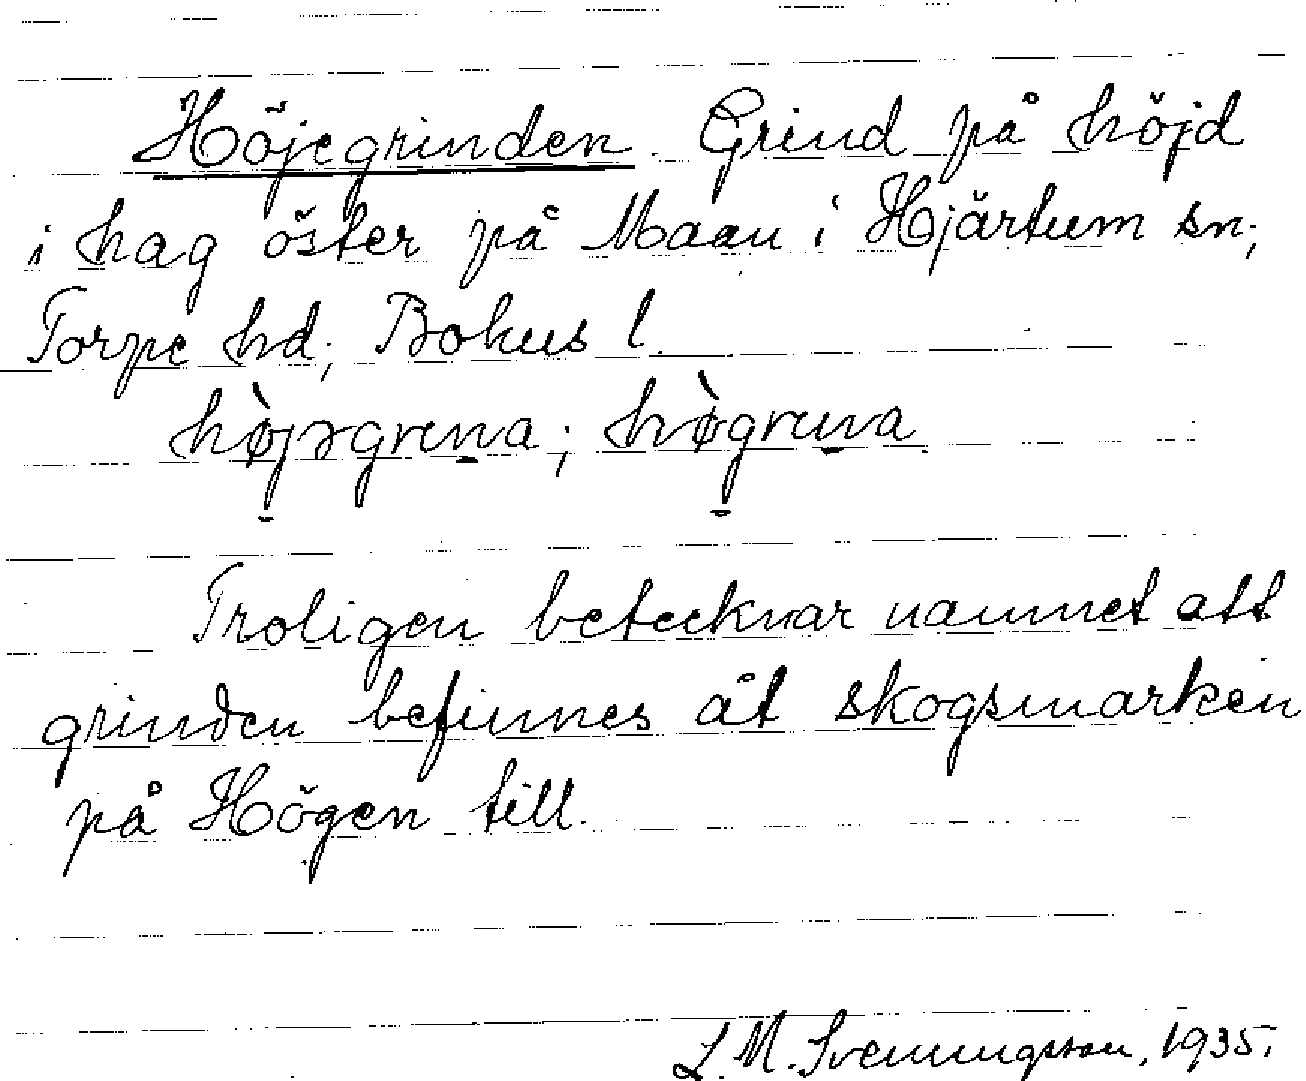 Höjegrinden. Grind på höjd
i hag öster på Maau i Hjärtum sn;
Torpe hd; Bohus l.
hø̀jəgrena; hø̀grena
Troligen betecknar namnet att
grinden befinnes åt skogsmarken
på Högen till.
L. M. Svenningson, 1935.